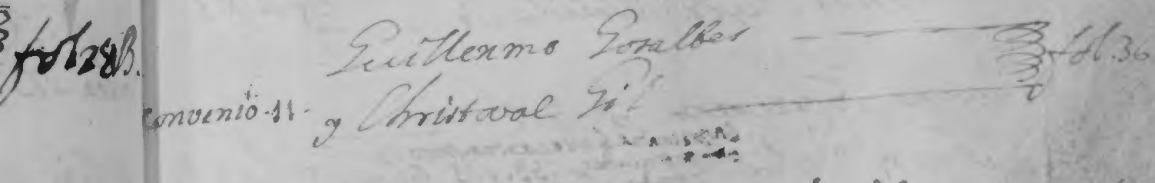 fol 28B.
Guillenmo Gosalbes fol. 36
Convenio. 11. y Christoval Gil